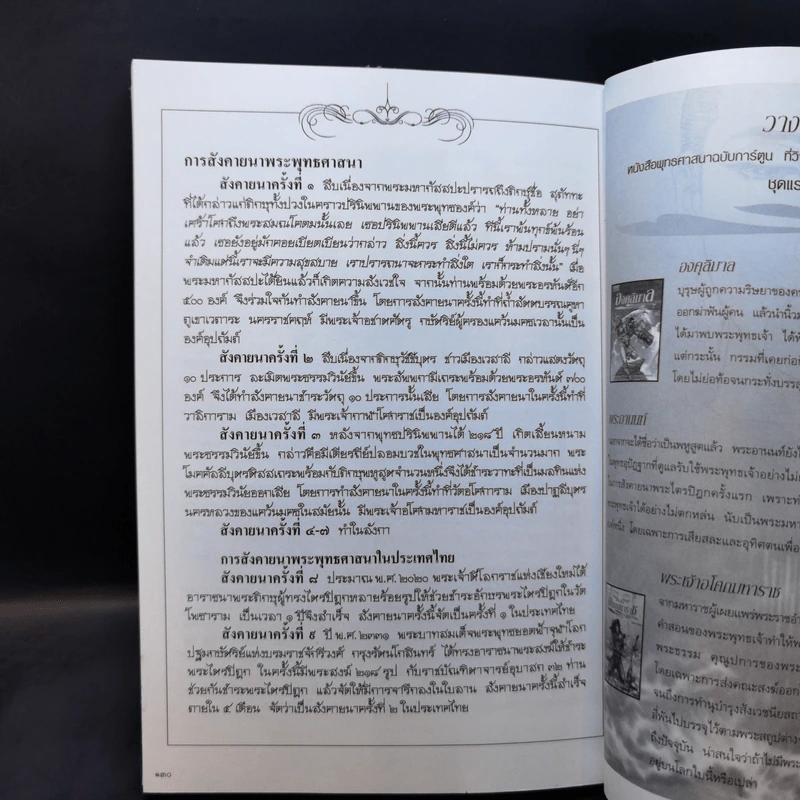 การสังคายนาพระพุทธศาสนา
สังคายนาครั้งที่ ๑ สืบเนื่องจากพระมหากัสสปะปรารถถึงภิกษุชื่อ สุภัททะ
ที่ได้กล่าวแก่ภิกษุทั้งปวงในคราวปรินิพพานของพระพุทธองค์ว่า "ท่านทั้งหลาย อย่า
เศร้าโศกถึงพระสมณโคดมนั้นเลย เธอปรินิพพานเสียดีแล้ว ทีนี้เราพ้นทุกข์พ้นร้อน
แล้ว เธอยังอยู่มักคอยเบียดเบียนว่ากล่าว สิ่งนี้ควร สิ่งนี้ไม่ควร ห้ามปรามนั่นๆ นี่ๆ
จำเดิมแต่นี้เราจะมีความสุขสบาย เราปรารถนาจะกระทำสิ่งใด เราก็กระทำสิ่งนั้น" เมื่อ
พระมหากัสสปะได้ยินแล้วก็เกิดความสังเวชใจ จากนั้นท่านพร้อมด้วยพระอรหันต์อีก
๕๐๐ องค์ จึงร่วมใจกันทำสังคายนาขึ้น โดยการสังคายนาครั้งนี้ทำที่ถ้ำสัตตบรรณคูหา
ภูเขาเวภาระ นครราชคฤห์ มีพระเจ้าอชาตศัตรู กษัตริย์ผู้ครองแคว้นมคธเวลานั้นเป็น
องค์อุปถัมภ์
สังคายนาครั้งที่ ๒ สืบเนื่องจากภิกษุวัชชีบุตร ชาวเมืองเวสาลี กล่าวแสดงวัตถุ
๑๐ ประการ ละเมิดพระธรรมวินัยขึ้น พระสัพพกามีเถระพร้อมด้วยพระอรหันต์ ๗๐๐
องค์ จึงได้ทำสังคายนาชำระวัตถุ ๑๐ ประการนั้นเสีย โดยการสังคายนาในครั้งนี้ทำที่
วาลิการาม เมืองเวสาลี มีพระเจ้ากาฬาโศกราชเป็นองค์อุปถัมภ์
สังคายนาครั้งที่ ๓ หลังจากพุทธปรินิพพานได้ ๒๑๘ ปี เกิดเสี้ยนหนาม
พระธรรมวินัยขึ้น กล่าวคือมีเดียรถีย์ปลอมบวชในพุทธศาสนาเป็นจำนวนมาก พระ
โมคคัลลีบุตรติสสเถระพร้อมกับภิกษุพหูสูตจำนวนหนึ่งจึงได้ชำระวาทะที่เป็นมลทินแห่ง
พระธรรมวินัยออกเสีย โดยการทำสังคายนาในครั้งนี้ทำที่วัดอโศการาม เมืองปาฏลีบุตร
นครหลวงของแคว้นมคธในสมัยนั้น มีพระเจ้าอโศกมหาราชเป็นองค์อุปถัมภ์
สังคายนาครั้งที่ ๔-๗ ทำในลังกา
การสังคายนาพระพุทธศาสนาในประเทศไทย
สังคายนาครั้งที่ ๘ ประมาณ พ.ศ. ๒๐๒๐ พระเจ้าติโลกราชแห่งเชียงใหม่ได้
อาราธนาพระภิกษุผู้ทรงไตรปิฎกหลายร้อยรูปให้ช่วยชำระอักษรพระไตรปิฎกในวัด
โพธาราม เป็นเวลา ๑ ปีจึงสำเร็จ สังคายนาครั้งนี้จัดเป็นครั้งที่ ๑ ในประเทศไทย
สังคายนาครั้งที่ ๙ ปี พ.ศ. ๒๓๓๑ พระบาทสมเด็จพระพุทธยอดฟ้าจุฬาโลก
ปฐมกษัตริย์แห่งบรมราชจักรีวงศ์ กรุงรัตนโกสินทร์ ได้ทรงอาราธนาพระสงฆ์ให้ชำระ
พระไตรปิฎก ในครั้งนี้มีพระสงฆ์ ๒๑๘ รูป กับราชบัณฑิตาจารย์อุบาสก ๓๒ ท่าน
ช่วยกันชำระพระไตรปิฎก แล้วจัดให้มีการจารึกลงในใบลาน สังคายนาครั้งนี้สำเร็จ
ภายใน ๕ เดือน จัดว่าเป็นสังคายนาครั้งที่ ๒ ในประเทศไทย
๑๓๐
วาง
หนังสือพุทธศาสนาฉบับการ์ตูน ที่วิ
ชุดแร
องคุลิมาล
บุรุษผู้ถูกความริษยาของค
ออกฆ่าฟันผู้คน แล้วนำนิ้วม
ได้มาพบพระพุทธเจ้า ได้ฟั
แต่กระนั้น กรรมที่เคยก่อ
โดยไม่ย่อท้อจนกระทั่งบรร
องคุลิมาล
พระอานนท์
นอกจากจะได้ชื่อว่าเป็นพหูสูตแล้ว พระอานนท์ยังไ
พุทธอุปัฏฐากที่ดูแลรับใช้พระพุทธเจ้าอย่างไม่
ในการสังคายนาพระไตรปิฎกครั้งแรก เพราะท่
พระพุทธเจ้าได้อย่างไม่ตกหล่น นับเป็นพระมหา
โดยเฉพาะการเสียสละและอุทิศตนเพื่อ
พระเจ้าอโศกมหาราช
จากมหาราชผู้เผยแผ่พระราชอำ
คำสอนของพระพุทธเจ้าทำให้พ
พระธรรม คุณูปการของพระ
โดยเฉพาะการส่งคณะสงฆ์ออก
จนถึงการทำนุบำรุงสังเวชนียสถ
สี่พันไปบรรจุไว้ตามพระสถูปต่าง
ถึงปัจจุบัน น่าสนใจว่าถ้าไม่มีพระ
อยู่บนโลกใบนี้หรือเปล่า